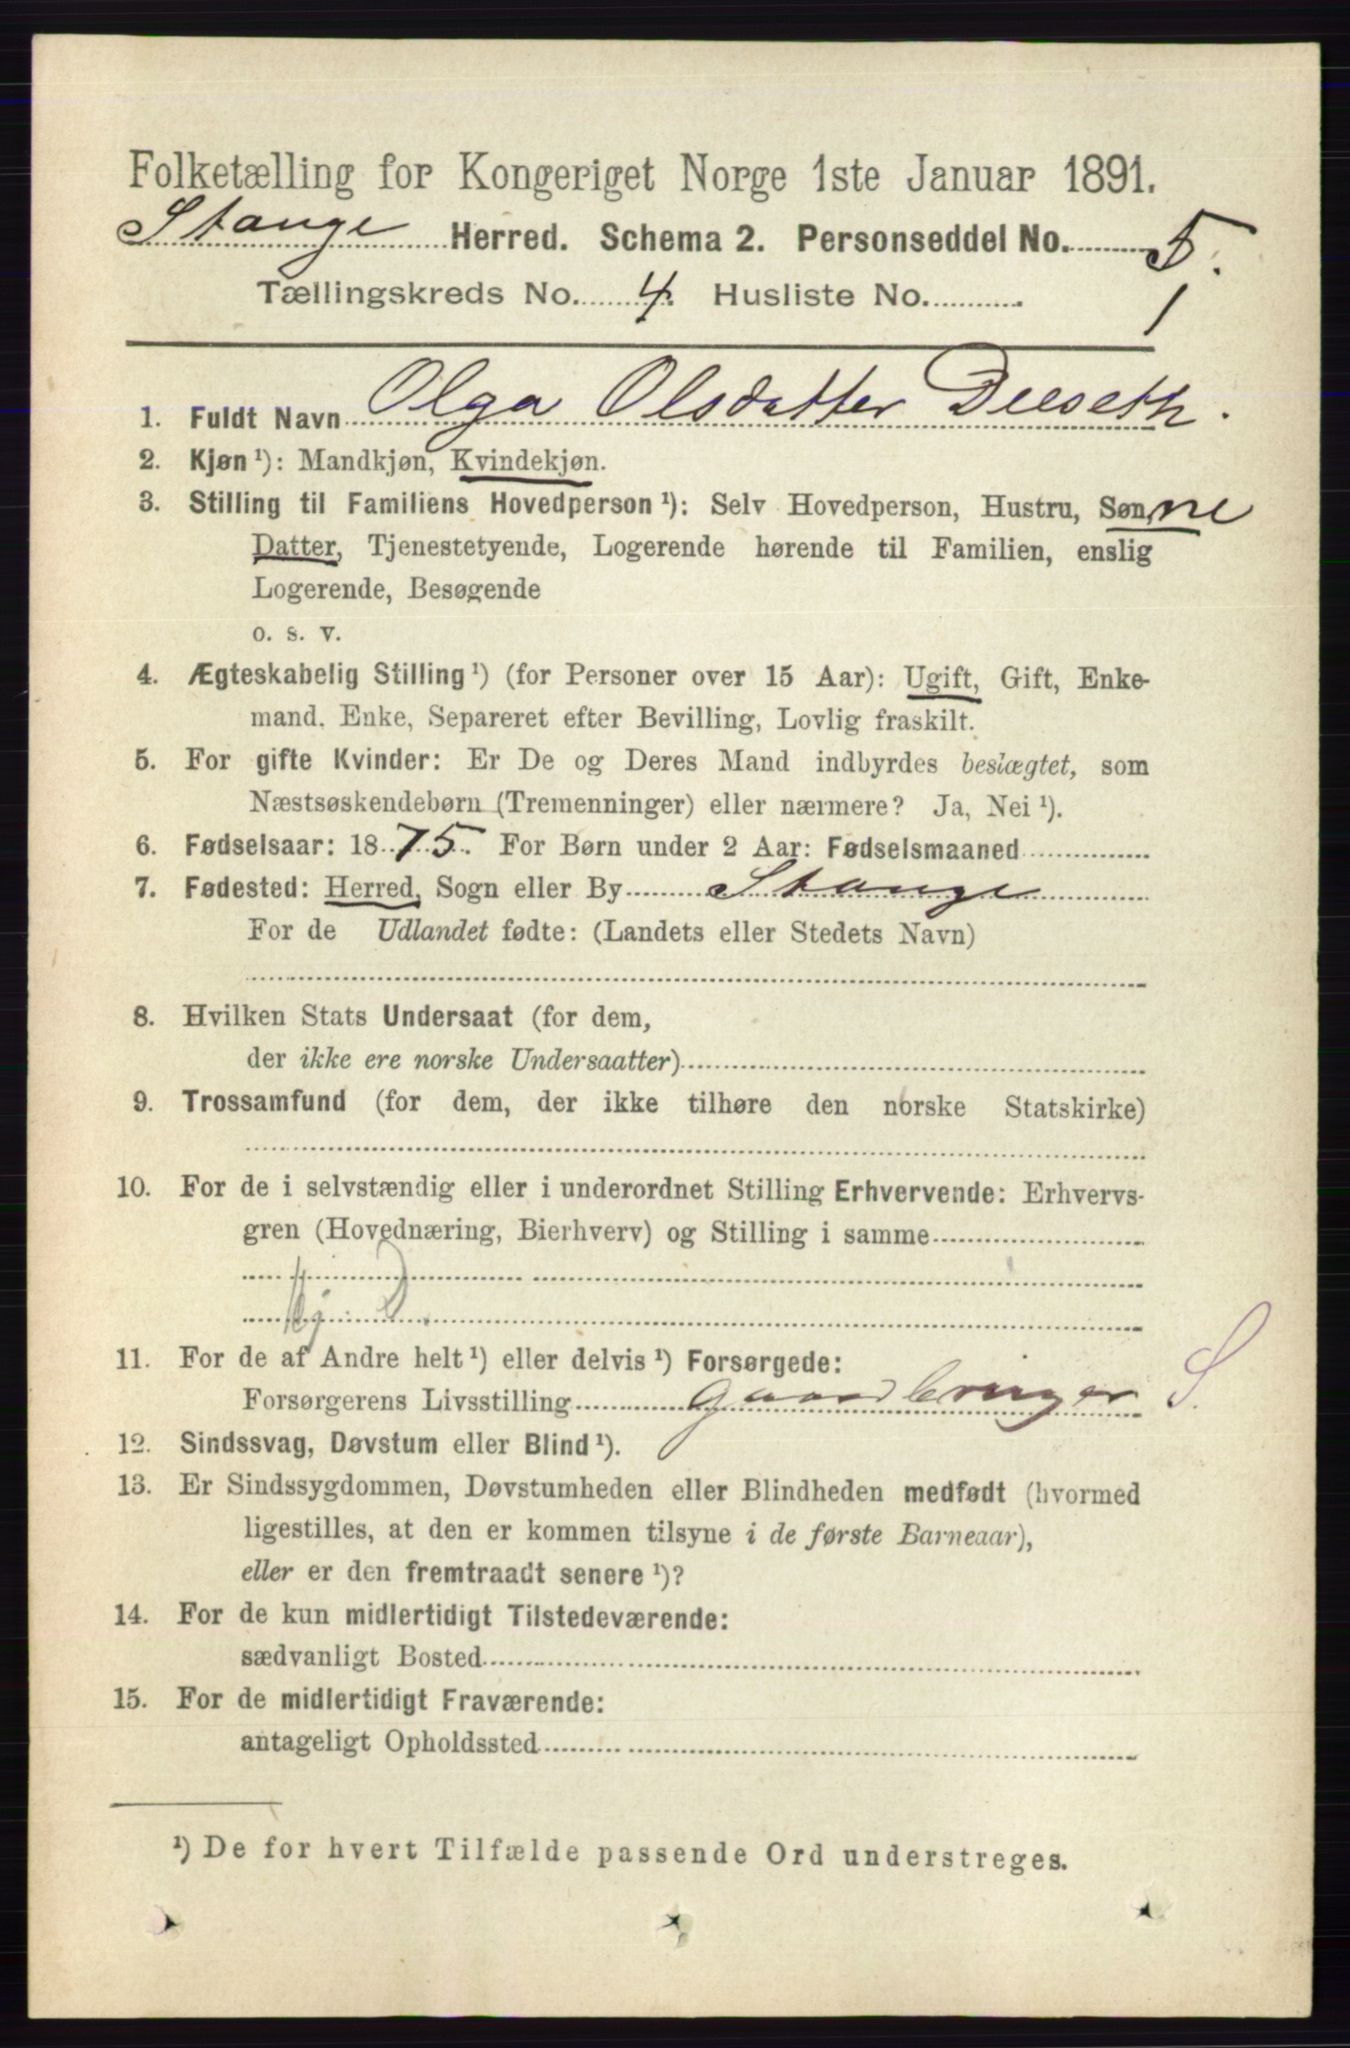 Folketælling for Kongeriget Norge 1ste Januar 1891.
Stange Herred. Schema 2. Personseddel No. 5.
Tællingskreds No. 4. Husliste No. 1
1. Fuldt Navn Olga Olsdatter Deeseth.
2. Kjøn ¹): Mandkjøn, Kvindekjøn.
3. Stilling til Familiens Hovedperson ¹): Selv Hovedperson, Hustru, Søn, ne
Datter, Tjenestetyende, Logerende hørende til Familien, enslig
Logerende, Besøgende
o. s. v.
4. Ægteskabelig Stilling ¹) (for Personer over 15 Aar): Ugift, Gift, Enke-
mand. Enke, Separeret efter Bevilling, Lovlig fraskilt.
5. For gifte Kvinder: Er De og Deres Mand indbyrdes beslægtet, som
Næstsøskendebørn (Tremenninger) eller nærmere? Ja, Nei ¹).
6. Fødselsaar: 1875. For Børn under 2 Aar: Fødselsmaaned
7. Fødested: Herred, Sogn eller By Stange
For de Udlandet fødte: (Landets eller Stedets Navn)
8. Hvilken Stats Undersaat (for dem,
der ikke ere norske Undersaatter)
9. Trossamfund (for dem, der ikke tilhøre den norske Statskirke)
10. For de i selvstændig eller i underordnet Stilling Erhvervende: Erhvervs-
gren (Hovednæring, Bierhverv) og Stilling i samme
11. For de af Andre helt ¹) eller delvis ¹) Forsørgede:
Forsørgerens Livsstilling Gaardbruger S.
12. Sindssvag, Døvstum eller Blind ¹).
13. Er Sindssygdommen, Døvstumheden eller Blindheden medfødt (hvormed
ligestilles, at den er kommen tilsyne i de første Barneaar),
eller er den fremtraadt senere ¹)?
14. For de kun midlertidigt Tilstedeværende:
sædvanligt Bosted
15. For de midlertidigt Fraværende:
antageligt Opholdssted
¹) De for hvert Tilfælde passende Ord understreges.